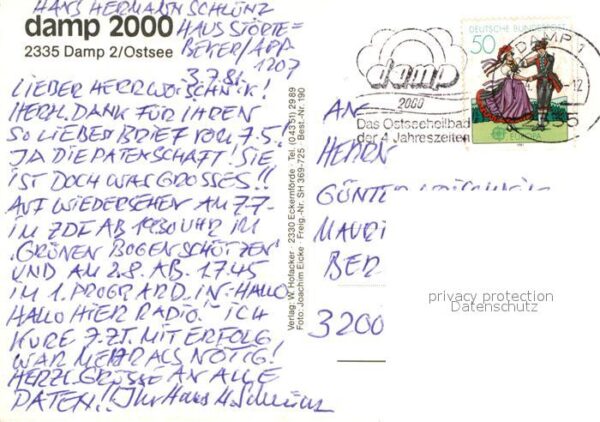 HANS HERMANN SCHLÜNZ
damp 2000
2335 Damp 2/Ostsee
HAUS STÖRTE=
BEKER/APP
1207
3.7.81.
LIEBER HERR
HERZL. DANK FÜR IHREN
SO LIEBEN BRIEF VOM 7.5!
JA DIE PATENSCHAFT! SIE
IST DOCH WAS GROSSES!!
AUF WIEDERSEHEN AM 7.7.
IM ZDF AB 1930 UHR IM
"GRÜNEN BOGENSCHÜTZEN"
UND AM 2.8. AB. 17.45
IM 1. PROGR ARD IN: HALLO
HALLO HIER RADIO. ICH
KURE Z.ZT. MIT ERFOLG
WAR MEHR ALS NÖTIG!
HERZL. GRÜSSE AN ALLE
PATEN!! Ihr Hans H. Schlünz
Verlag: W. Hofacker · 2330 Eckernförde · Tel. (04351) 2989
Foto: Joachim Eicke · Freig.-Nr. SH 369-725 · Best.-Nr. 190
damp
2000
Das Ostseeheilbad
der 4 Jahreszeiten
DAMP 1
-12
DEUTSCHE BUNDESPOST
50
EUROPA
AN
HERRN
GÜNTER
MAURI
BER
3200
privacy protection
Datenschutz